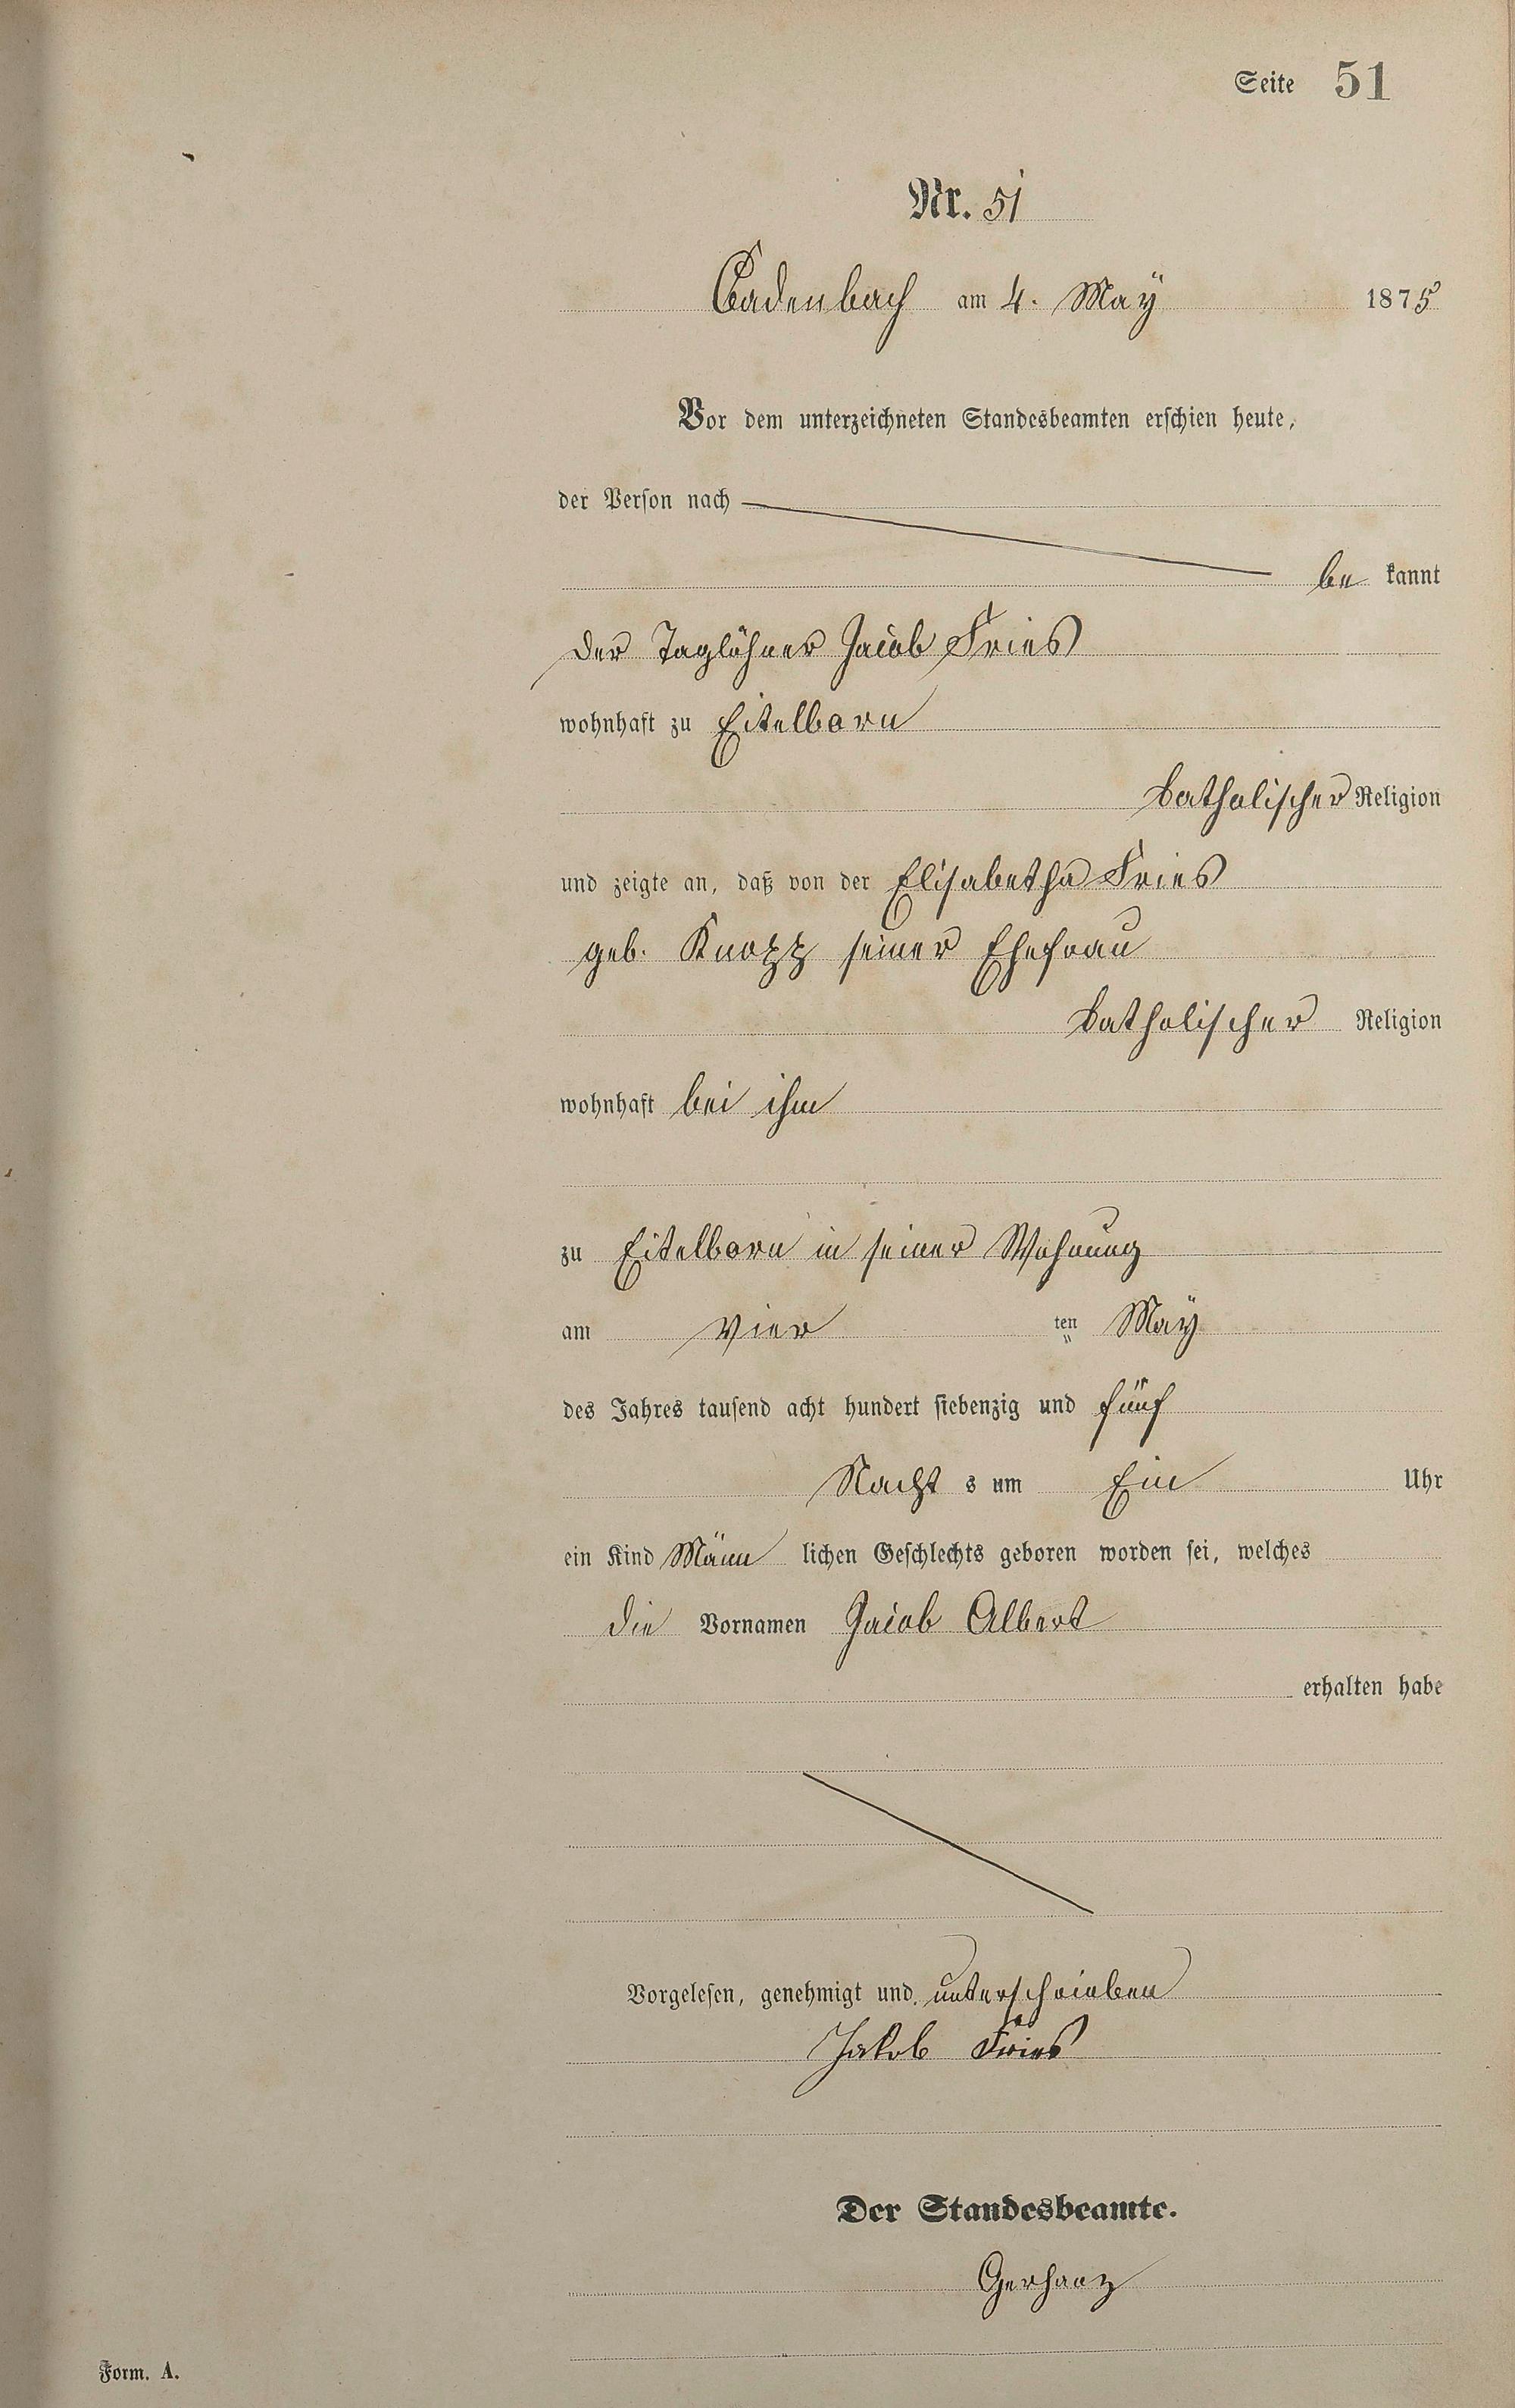 Seite 51
Nr. 51
Cadenbach am 4. May 1875
Vor dem unterzeichneten Standesbeamten erschien heute,
der Person nach
be kannt
der Taglöhner Jacob Fries
wohnhaft zu Eitelborn
katholischer Religion
und zeigte an, daß von der Elisabetha Fries
geb. Knopp seiner Ehefrau
katholischer Religion
wohnhaft bei ihm
zu Eitelborn in seiner Wohnung
am vier ten May
des Jahres tausend acht hundert siebenzig und fünf
Nacht s um Ein Uhr
ein Kind Männ lichen Geschlechts geboren worden sei, welches
die Vornamen Jacob Albert
erhalten habe
Vorgelesen, genehmigt und unterschrieben
Jakob Fries
Der Standesbeamte.
Gerharz
Form. A.